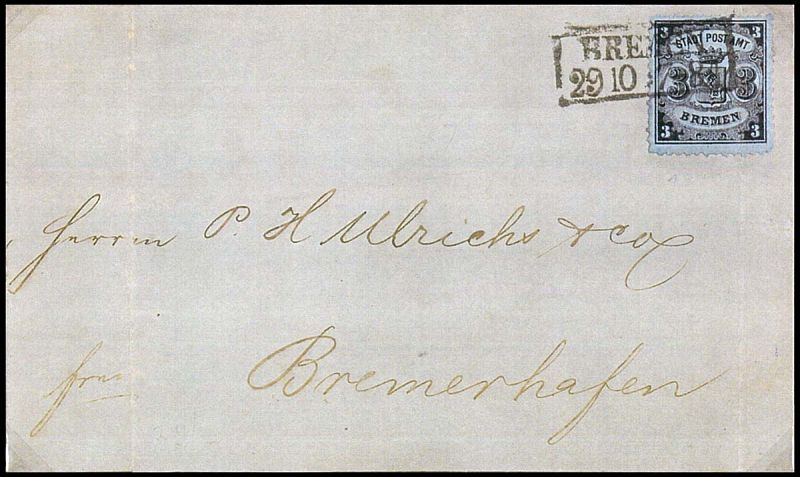 BREMEN
29 10
3 3
STADT POST AMT
3 3
BREMEN
3 3
Herrn P. H Ulrichs & Co
Bremerhafen